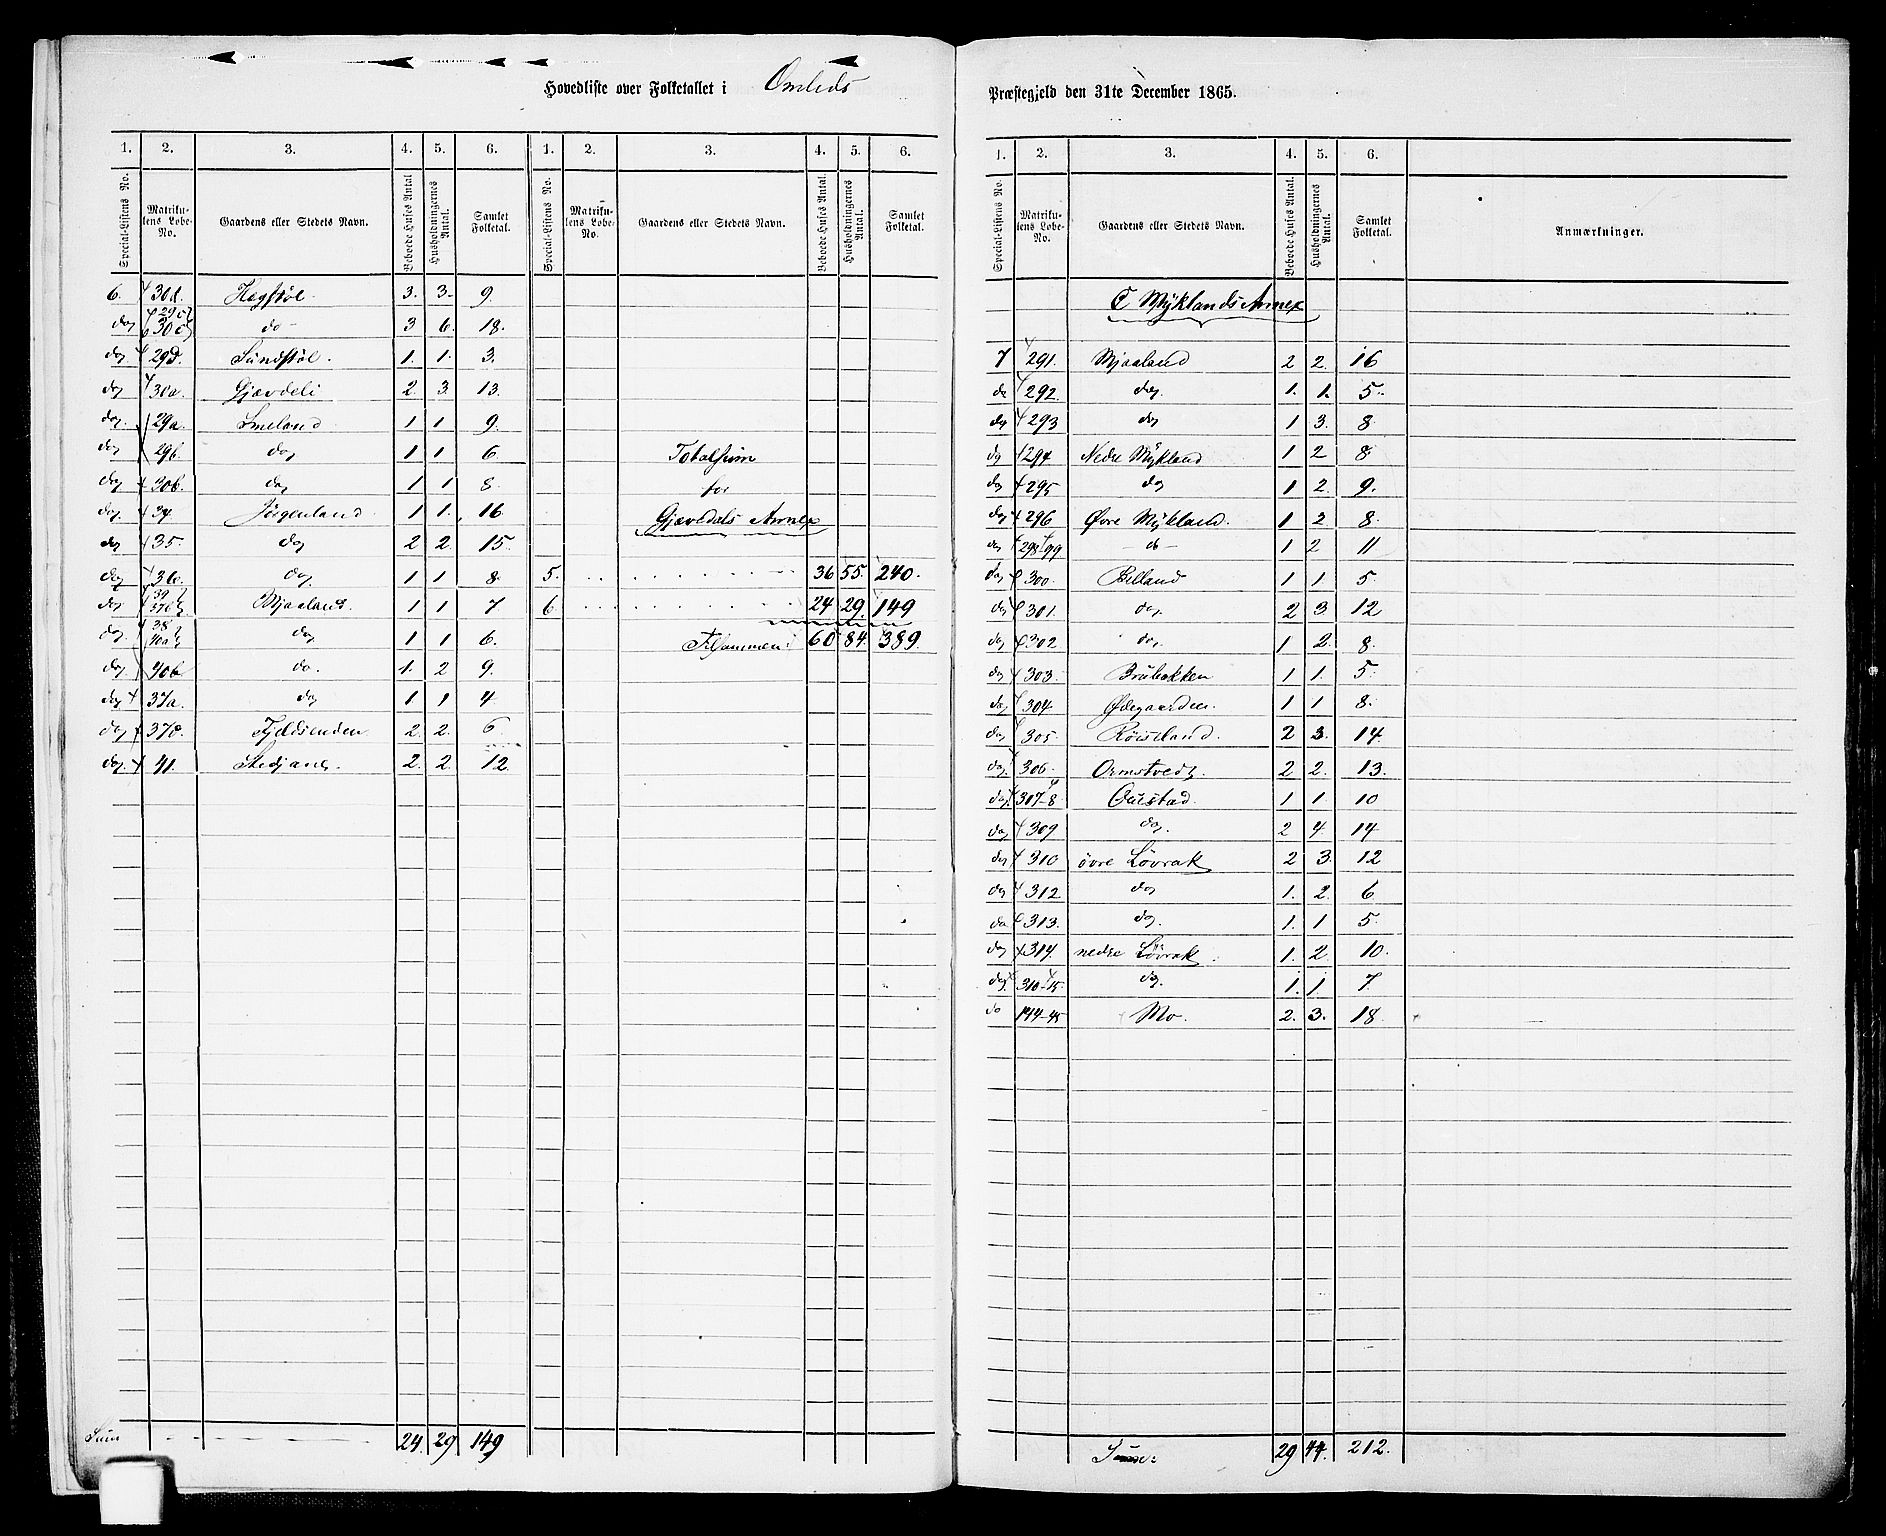 Hovedliste over Folketallet i Omlids Præstegjeld den 31te December 1865.
1. 2. 3. 4. 5. 6. 1. 2. 3. 4. 5. 6.
Special-Listens No. Matrikulens Løbe-No. Gaardens eller Stedets Navn. Beboede Huses Antal Husholdningernes Antal. Samlet Folketal. Special-Listens No. Matrikulens Løbe-No. Gaardens eller Stedets Navn. Beboede Huses Antal. Husholdningernes Antal. Samlet Folketal.
6. 30d. Hægstøl. 3. 3. 9.
do 29c 30c do 3 6. 18.
do 29d. Sundstøl. 1. 1. 3.
do 30a. Gjævdeli 2. 3. 13.
do 29a Smeland 1 1 9.
do 29b. do 1 1 6.
do 30b. do 1 1 8.
do. 34. Jørgenland 1 1. 16
do 35. do 2 2. 15.
do 36. do 1 1 8.
do 39 37b Mjaaland. 1 1 7
do. 38 40a do 1 1 6.
do 40b do. 1. 2 9.
do 37a do 1 1 4
do 37c. Fjeldsenden 2. 2. 6.
do. 41. Stedjane 2. 2. 12.
Sum 24. 29 149
Totalsum
for
Gjævedals Annex
5. 36 55. 240.
6. 24 29. 149
Tilsammen 60 84. 389.
1. 2. 3. 4. 5. 6.
Special-Listens No. Matrikulens Løbe-No. Gaardens eller Stedets Navn. Beboede Huses Antal. Husholdningernes Antal. Samlet Folketal. Anmærkninger.
C Myklands Annex
7 291. Mjaaland 2 2. 16
do 292. do. 1. 1. 5.
do 293 do 1 3. 8
do 294 Nedre Mykland 1 2 8
do 295 do 1 2. 9.
do 296 Øvre Mykland. 1 2 8.
do 298-99 do 1 2 11
do 300. Belland 1 1 5.
do 301. do. 2 3. 12
do 302 do. 1 2. 8.
do 303. Brubakken 1 1. 5
do 304. Ødegaarden. 1 1 8.
do 305. Røiseland. 2 3. 14.
do 306. Ormstvedt. 2 2. 13.
do 307-8 Gaustad. 1 1. 10
do 309 do. 2 4. 14
do 310 øvre Løvrak 2 3. 12
do 312 do 1. 2. 6
do 313. do. 1. 1 5.
do 314. nedre Løvrak. 1. 2. 10.
do. 310-15. do. 1. 1 7.
do 144-45 Mo. 2. 3. 18.
Summe: 29 44. 212.